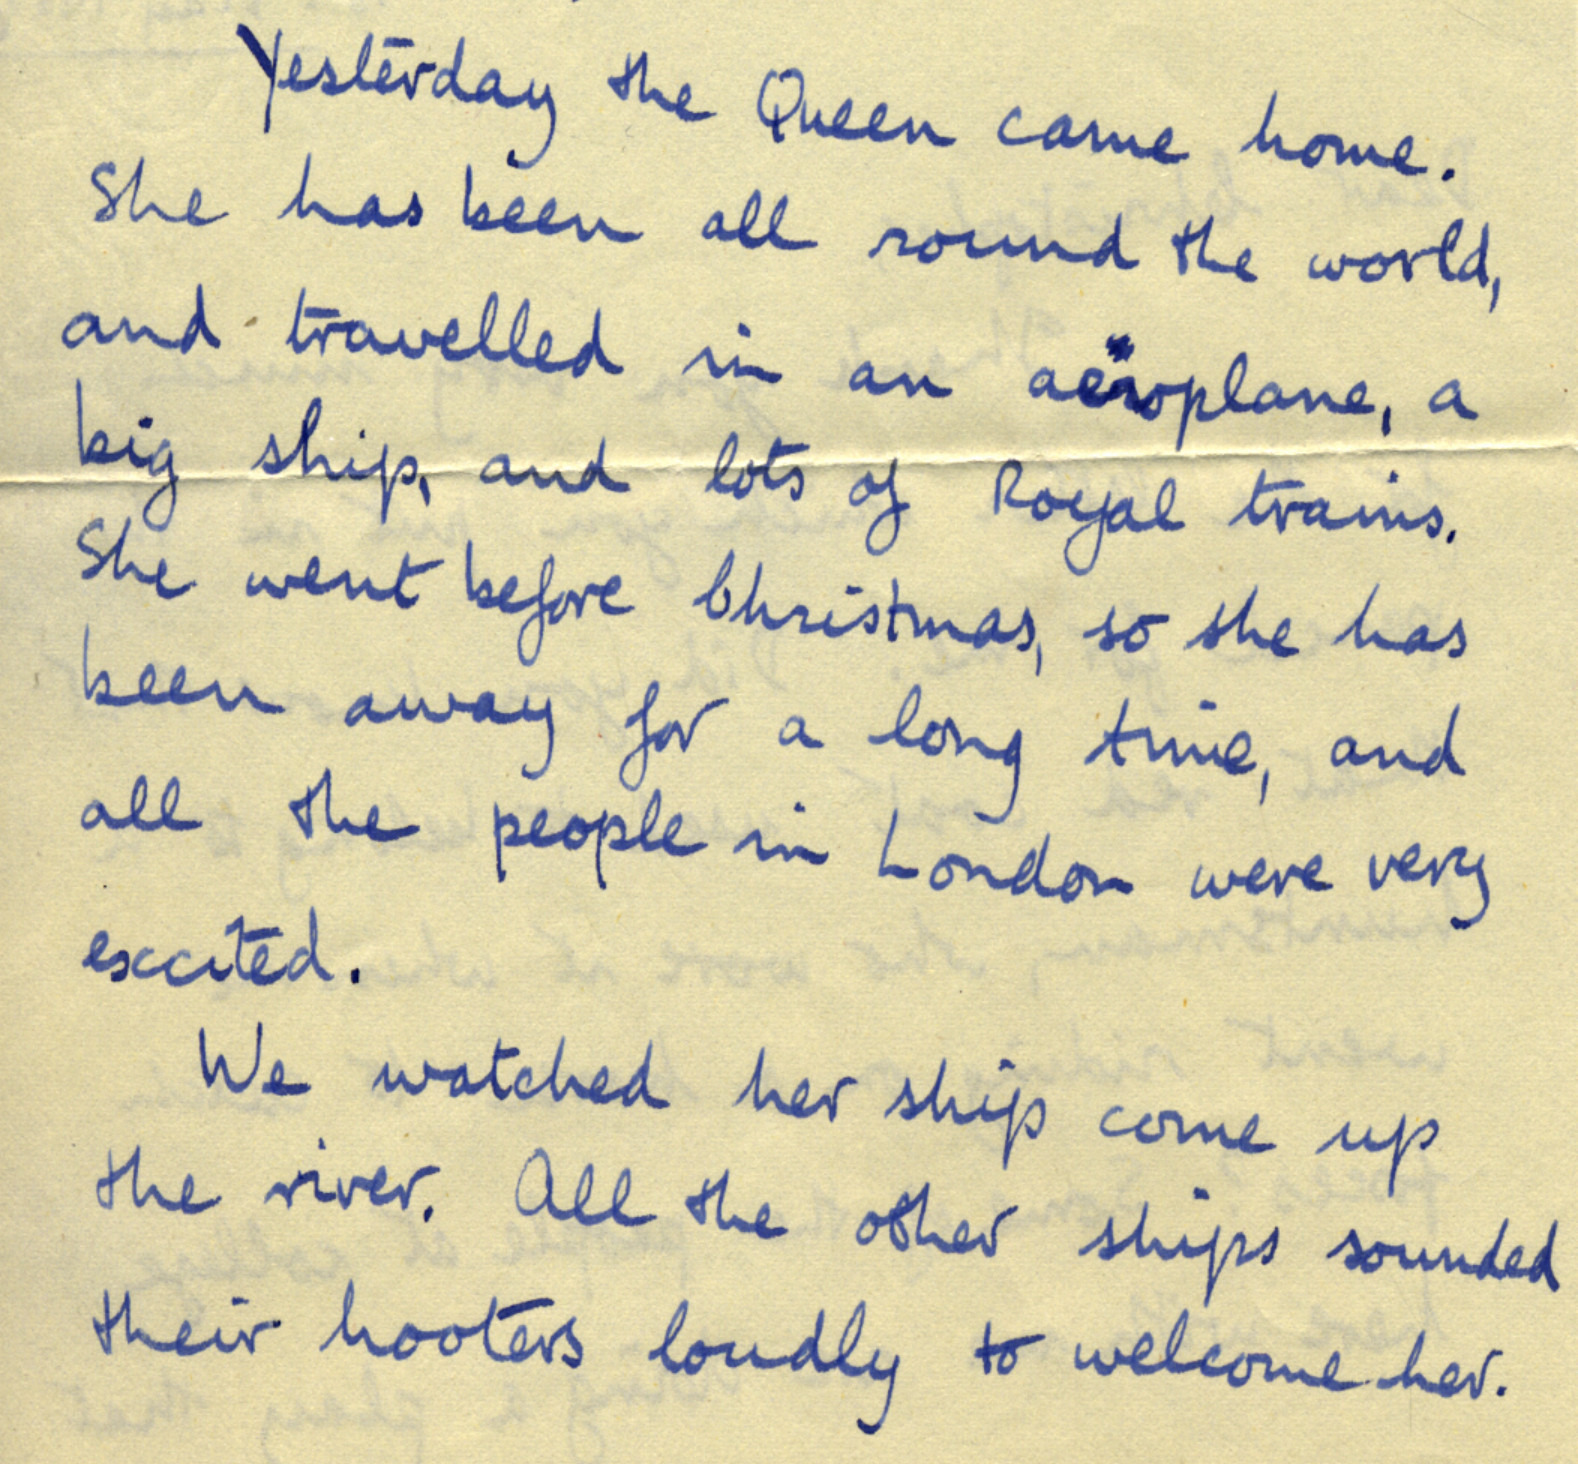 Yesterday the Queen came home.
She has been all round the world,
and travelled in an aëroplane, a
big ship, and lots of Royal trains.
She went before Christmas, so she has
been away for a long time, and
all the people in London were very
excited.
We watched her ship come up
the river. All the other ships sounded
their hooters loudly to welcome her.